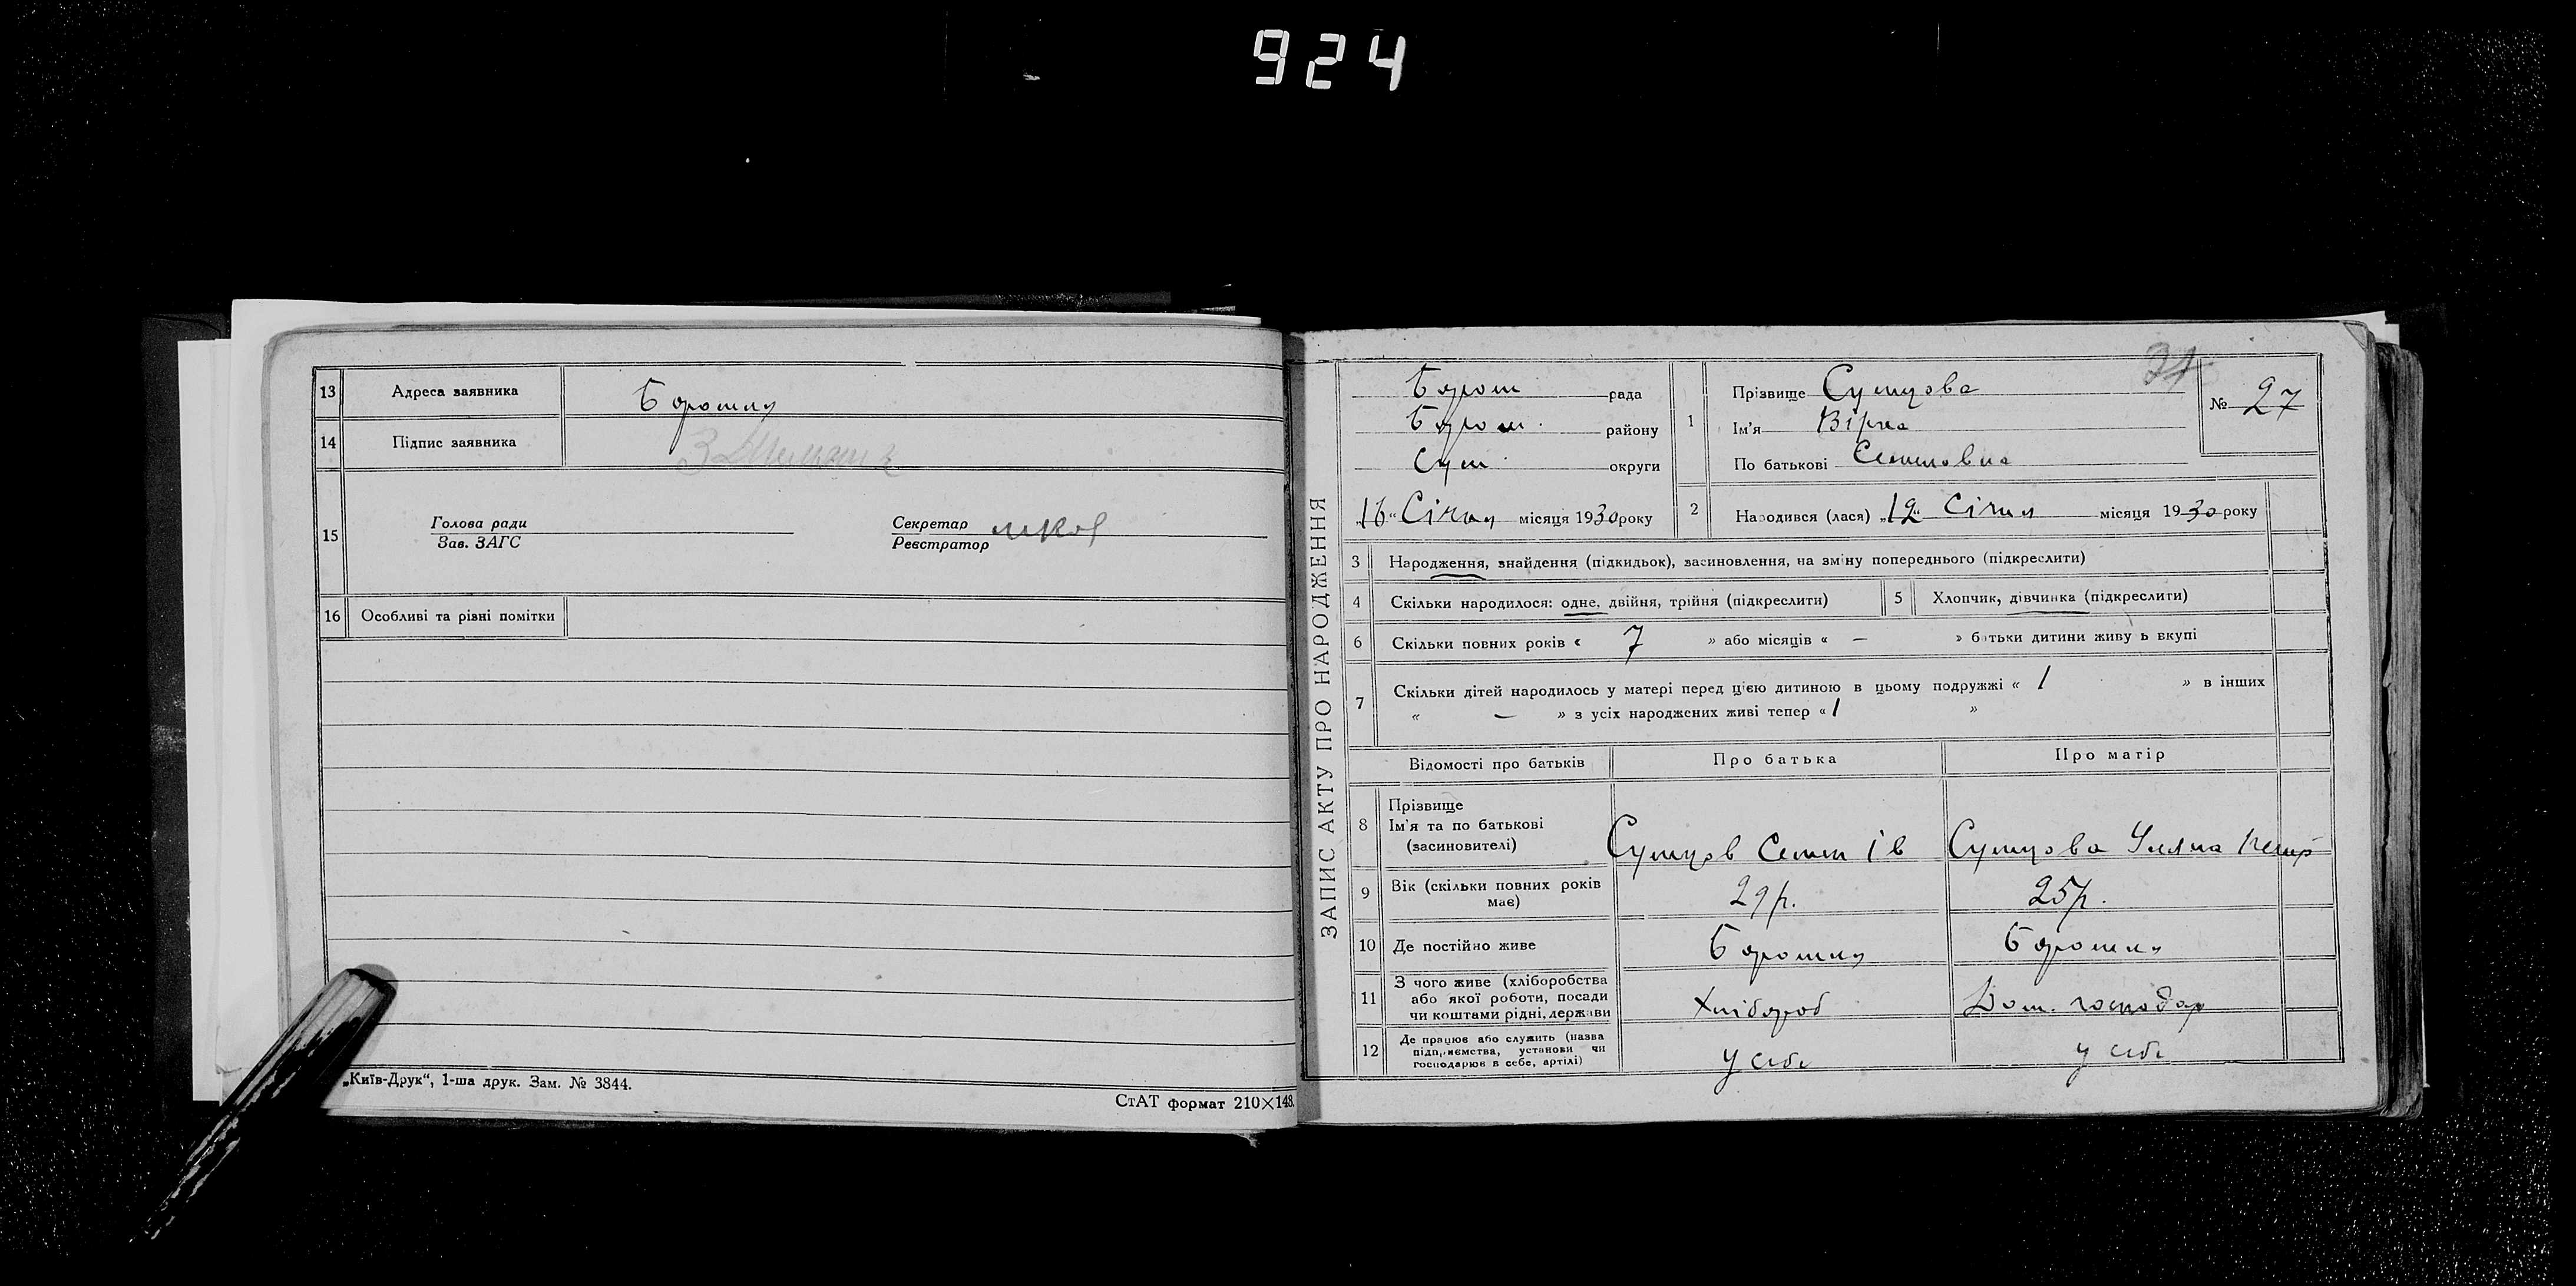 924
13 Адреса заявника Боромля
14 Підпис заявника
15 Голова ради
Зав. ЗАГС
Секретар
Реєстратор
16 Особливі та різні помітки
„Київ-Друк“, 1-ша друк. Зам. № 3844.
СтАТ формат 210×148.
ЗАПИС АКТУ ПРО НАРОДЖЕННЯ
Бором рада
Бором. району
Сум. округи
„16“ Січня місяця 1930 року
31
№ 27
1 Прізвище Сумцова
Ім'я Вірка
По батькові Семеновна
2 Народився (лася) „12“ Січня місяця 1930 року
3 Народження, знайдення (підкидьок), засиновлення, на зміну попереднього (підкреслити)
4 Скільки народилося: одне, двійня, трійня (підкреслити)
5 Хлопчик, дівчинка (підкреслити)
6 Скільки повних років « 7 » або місяців « — » батьки дитини живуть вкупі
7 Скільки дітей народилось у матері перед цією дитиною в цьому подружжі « 1 » в інших
« — » з усіх народжених живі тепер « 1 »
Відомості про батьків Про батька Про матір
8 Прізвище
Ім'я та по батькові
(засиновителі)
Сумцов Семен Ів Сумцова Уляна Петр
9 Вік (скільки повних років має) 29 р. 25 р.
10 Де постійно живе Боромля Боромля
11 З чого живе (хліборобства
або якої роботи, посади
чи коштами рідні, держави
Хлібороб Дом. господар
12 Де працює або служить (назва
підприємства, установи чи
господарює в себе, артілі)
у себе у себе